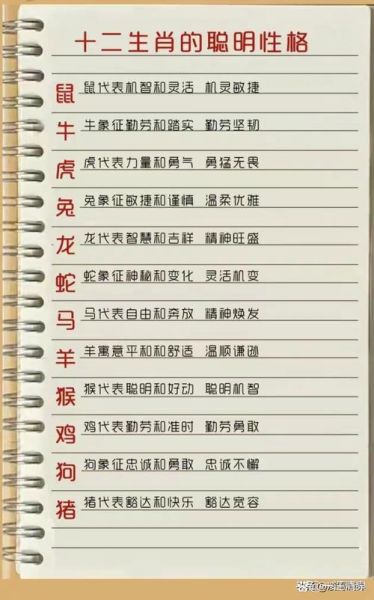 十二生肖的聪明性格
鼠 鼠代表机智和灵活 机灵敏捷
牛 牛象征勤劳和踏实 勤劳坚韧
虎 虎代表力量和勇气 勇猛无畏
兔 兔象征敏捷和谨慎 温柔优雅
龙 龙代表智慧和吉祥 精神旺盛
蛇 蛇象征神秘和变化 灵活机变
马 马代表自由和奔放 精神焕发
羊 羊寓意平和和舒适 温顺谦逊
猴 猴代表聪明和好动 聪明机智
鸡 鸡代表勤劳和准时 勤劳勇敢
狗 狗象征忠诚和勇敢 忠诚不懈
猪 猪代表豁达和快乐 豁达宽容